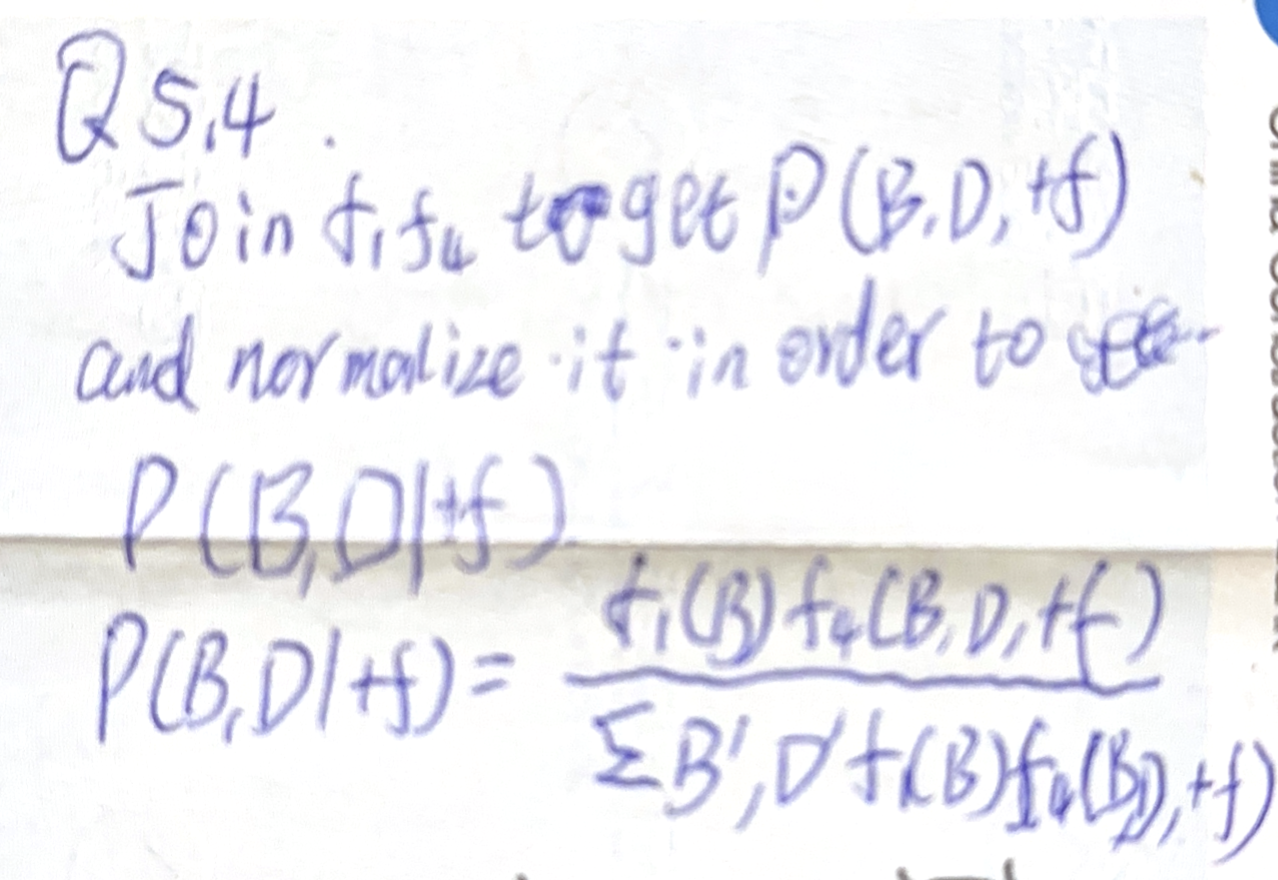 Q5.4.
Join f₁f₄ to get P(B,D,+f)
and normalize it in order to
P(B,D|+f)
P(B,D|+f)= f₁(B)f₄(B,D,+f)
ΣB',D'f₁(B)f₄(B,D,+f)